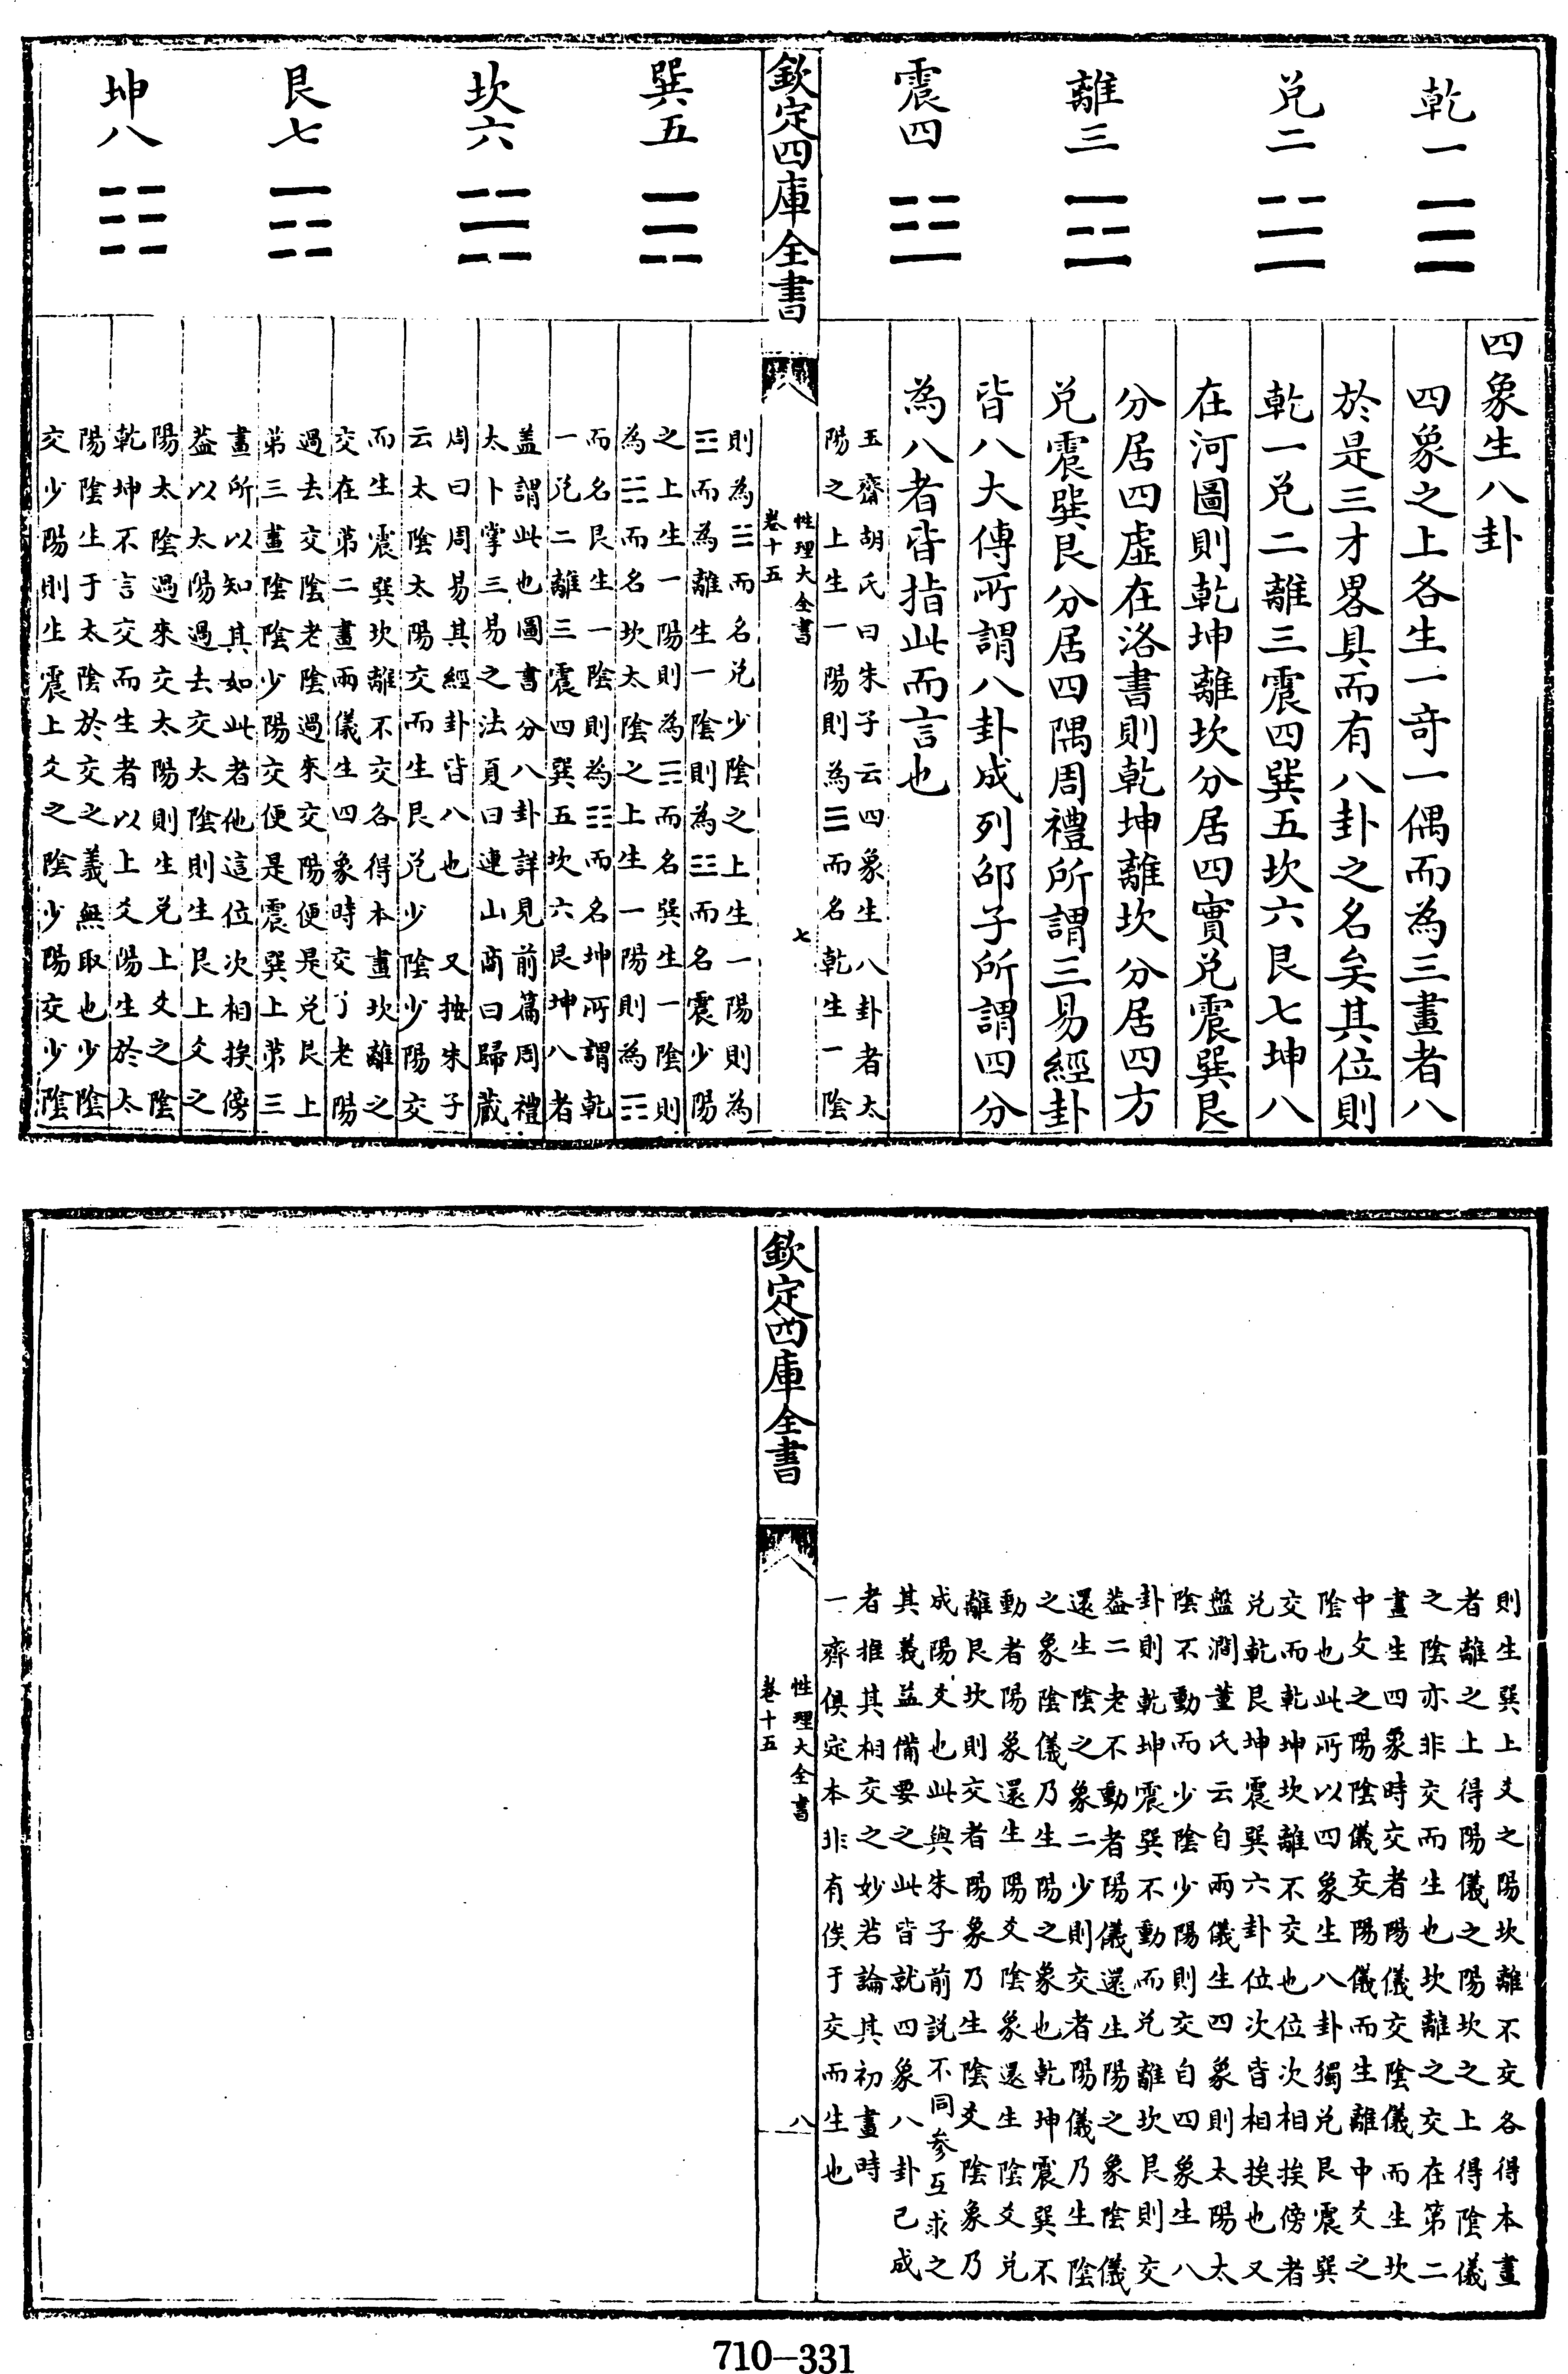 乾一 ☰
兌二 ☱
離三 ☲
震四 ☳
四象生八卦
四象之上各生一奇一偶而為三畫者八
於是三才畧具而有八卦之名矣其位則
乾一兌二離三震四巽五坎六艮七坤八
在河圖則乾坤離坎分居四實兌震巽艮
分居四虛在洛書則乾坤離坎分居四方
兌震巽艮分居四隅周禮所謂三易經卦
皆八大傳所謂八卦成列邵子所謂四分
為八者皆指此而言也
玉齋胡氏曰朱子云四象生八卦者太
陽之上生一陽則為☰而名乾生一陰
欽定四庫全書
性理大全書
卷十五
七
巽五 ☴
坎六 ☵
艮七 ☶
坤八 ☷
則為☱而名兌少陰之上生一陽則為
☲而為離生一陰則為☳而名震少陽
之上生一陽則為☴而名巽生一陰則
為☵而名坎太陰之上生一陽則為☶
而名艮生一陰則為☷而名坤所謂乾
一兌二離三震四巽五坎六艮坤八者
蓋謂此也圖書分八卦詳見前篇周禮
太卜掌三易之法夏曰連山商曰歸藏
周曰周易其經卦皆八也 又按朱子
云太陰太陽交而生艮兌少陰少陽交
而生震巽坎離不交各得本畫坎離之
交在第二畫兩儀生四象時交了老陽
過去交陰老陰過來交陽便是兌艮上
第三畫陰陰少陽交便是震巽上第三
畫所以知其如此者他這位次相挨傍
葢以太陽過去交太陰則生艮上爻之
陽太陰過來交太陽則生兌上爻之陰
乾坤不言交而生者以上爻陽生於太
陽陰生于太陰於交之義無取也少陰
交少陽則生震上爻之陰少陽交少陰
則生巽上爻之陽坎離不交各得本畫
者離之上得陽儀之陽坎之上得陰儀
之陰亦非交而生也坎離之交在第二
畫生四象時交者陽儀交陰儀而生坎
中爻之陽陰儀交陽儀而生離中爻之
陰也此所以四象生八卦獨兌艮震巽
交而乾坤坎離不交也位次相挨傍者
兌乾艮坤震巽六卦位次皆相挨也又
盤澗董氏云自兩儀生四象則太陽太
陰不動而少陰少陽則交自四象生八
卦則乾坤震巽不動而兌離坎艮則交
葢二老不動者陽儀還生陽之象陰儀
還生陰之象二少則交者陽儀乃生陰
之象陰儀乃生陽之象也乾坤震巽不
動者陽象還生陽爻陰象還生陰爻兌
離艮坎則交者陽象乃生陰爻陰象乃
成陽爻也此與朱子前説不同參互求之
其義益備要之此皆就四象八卦已成
者推其相交之妙若論其初畫時
一齊俱定本非有俟于交而生也
欽定四庫全書
性理大全書
卷十五
八
710-331